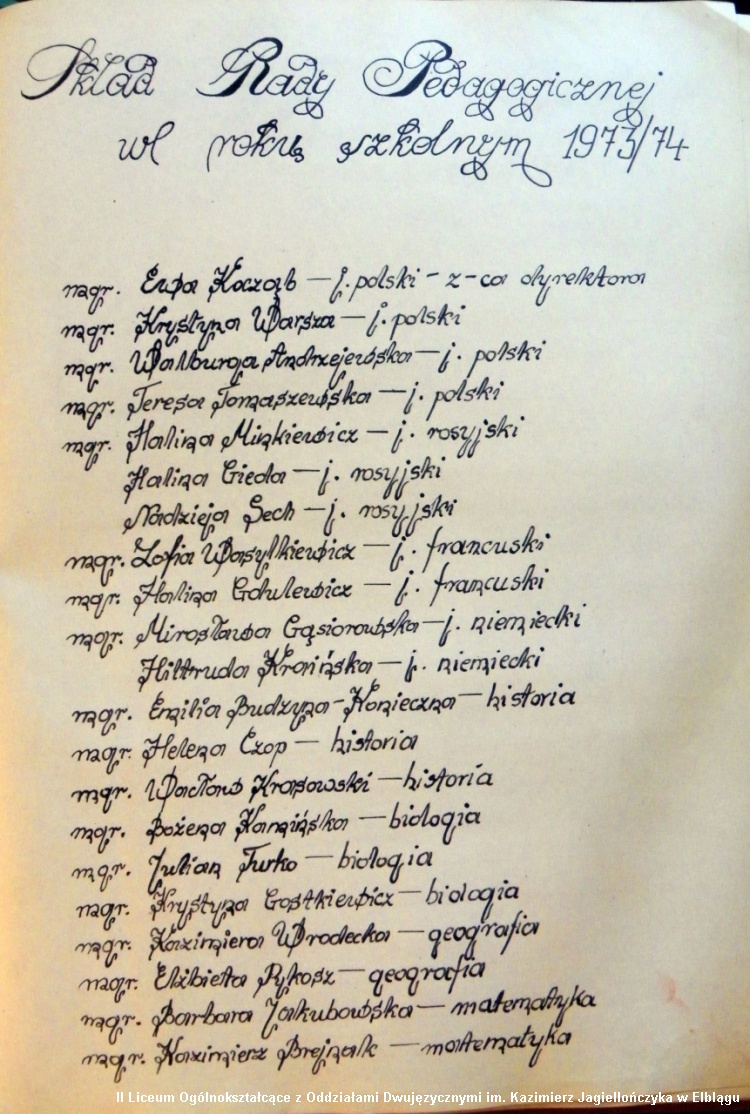 Skład Rady Pedagogicznej
w roku szkolnym 1973/74
mgr. Ewa Kocząb — j. polski - z-ca dyrektora
mgr. Krystyna Warsza — j. polski
mgr. Walburga Andrzejewska — j. polski
mgr. Teresa Tomaszewska — j. polski
mgr. Halina Minkiewicz — j. rosyjski
Halina Gieda — j. rosyjski
Nadzieja Sech — j. rosyjski
mgr. Zofia Wasylkiewicz — j. francuski
mgr. Halina Gdulewicz — j. francuski
mgr. Mirosława Gąsiorowska — j. niemiecki
Hiltruda Kraińska — j. niemiecki
mgr. Emilia Budzyna-Konieczna — historia
mgr. Helena Czop — historia
mgr. Wacław Krasowski — historia
mgr. Bożena Kamińska — biologia
mgr. Julian Turko — biologia
mgr. Krystyna Gostkiewicz — biologia
mgr. Kazimiera Wrodecka — geografia
mgr. Elżbieta Rykosz — geografia
mgr. Barbara Jakubowska — matematyka
mgr. Kazimierz Brejnak — matematyka
II Liceum Ogólnokształcące z Oddziałami Dwujęzycznymi im. Kazimierz Jagiellończyka w Elblągu